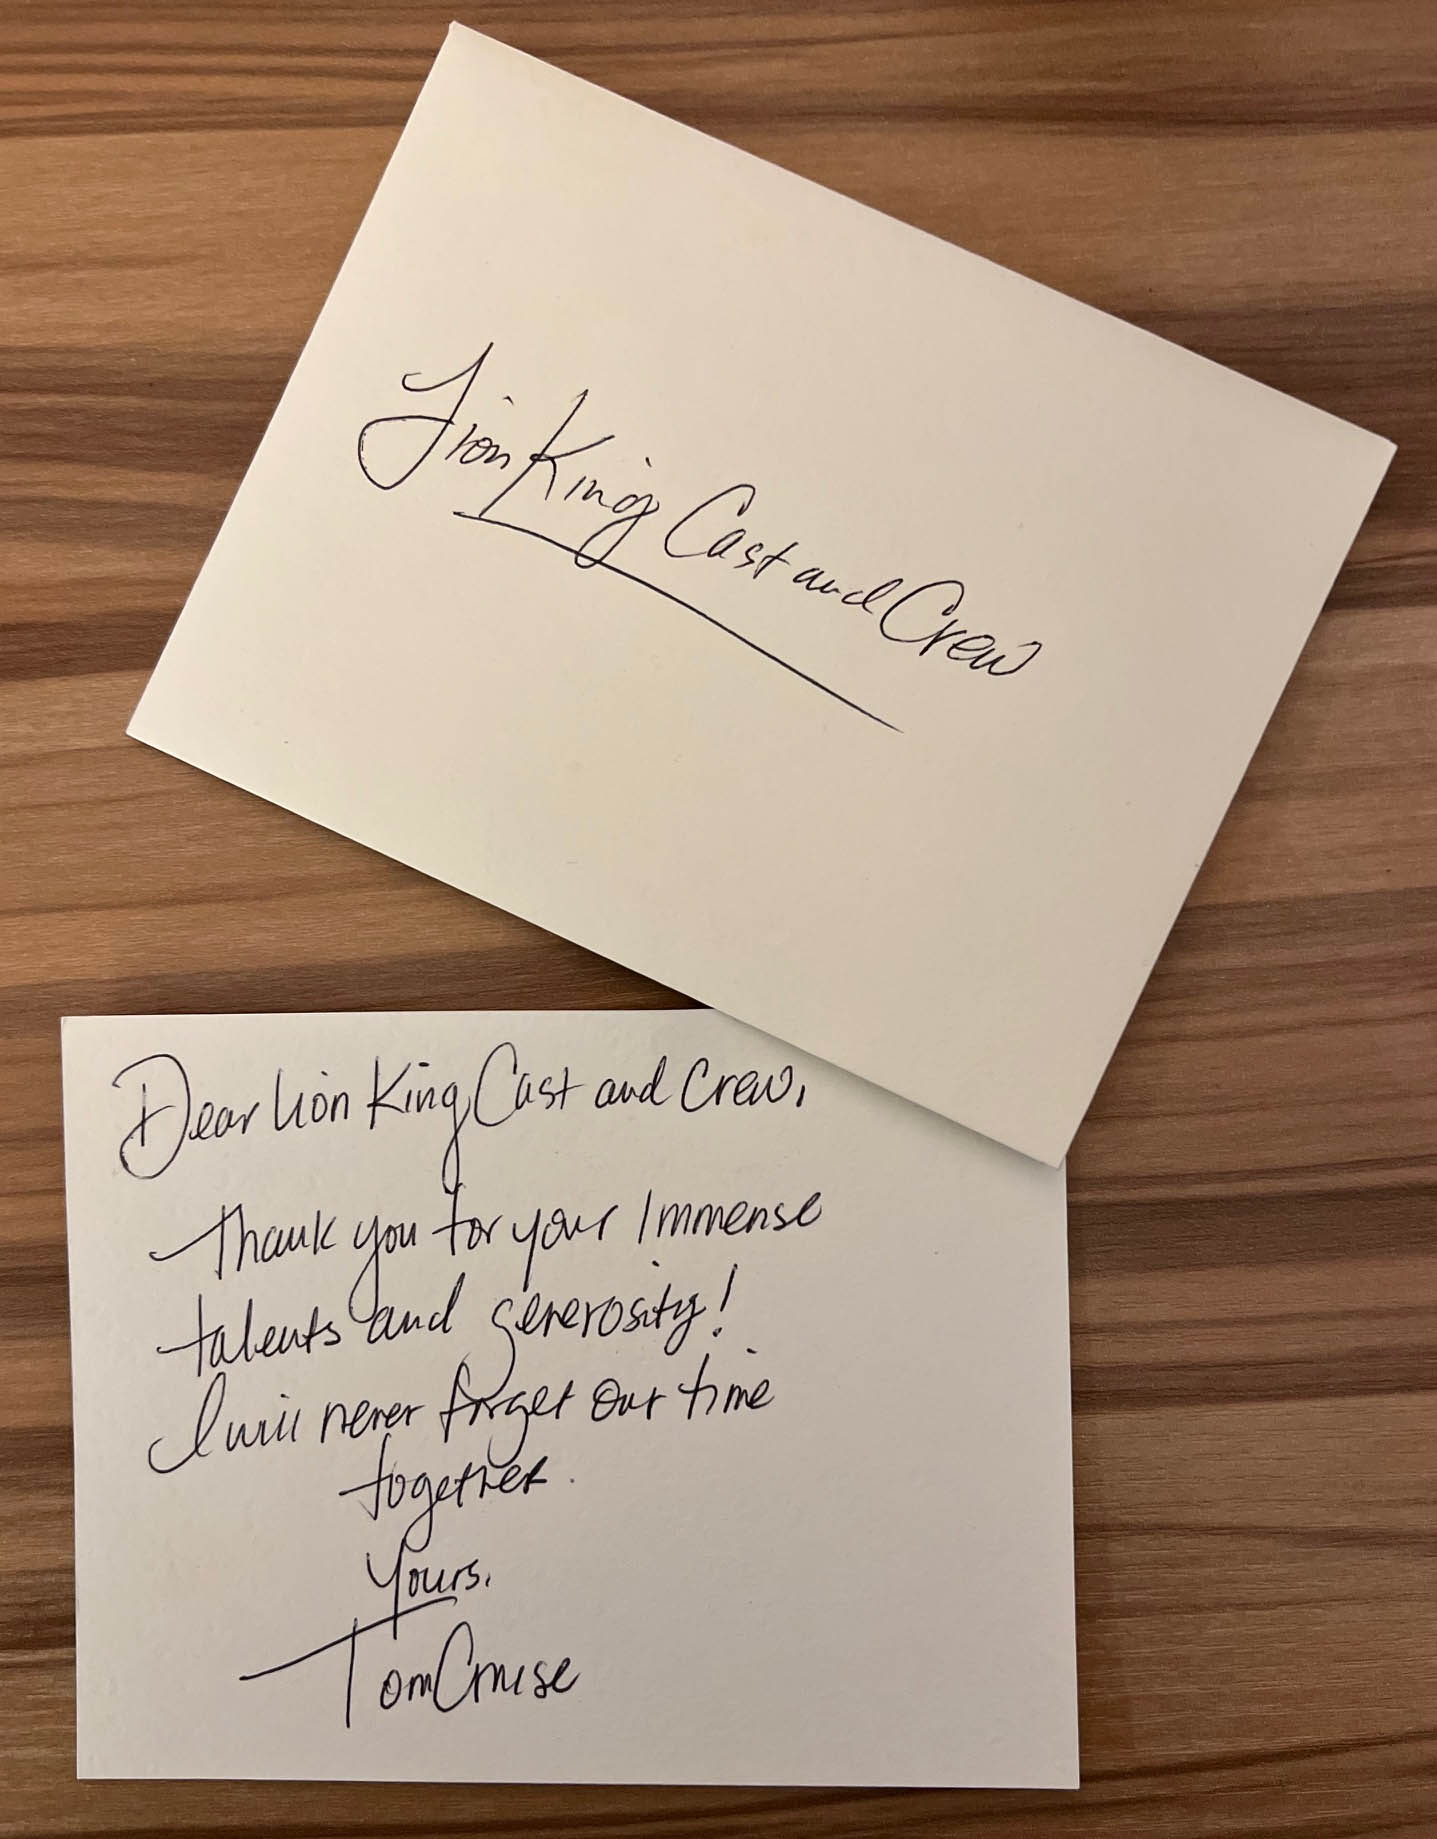 Lion King Cast and Crew
Dear Lion King Cast and Crew,
Thank you for your Immense
talents and generosity!
I will never forget our time
together.
Yours,
Tom Cruise